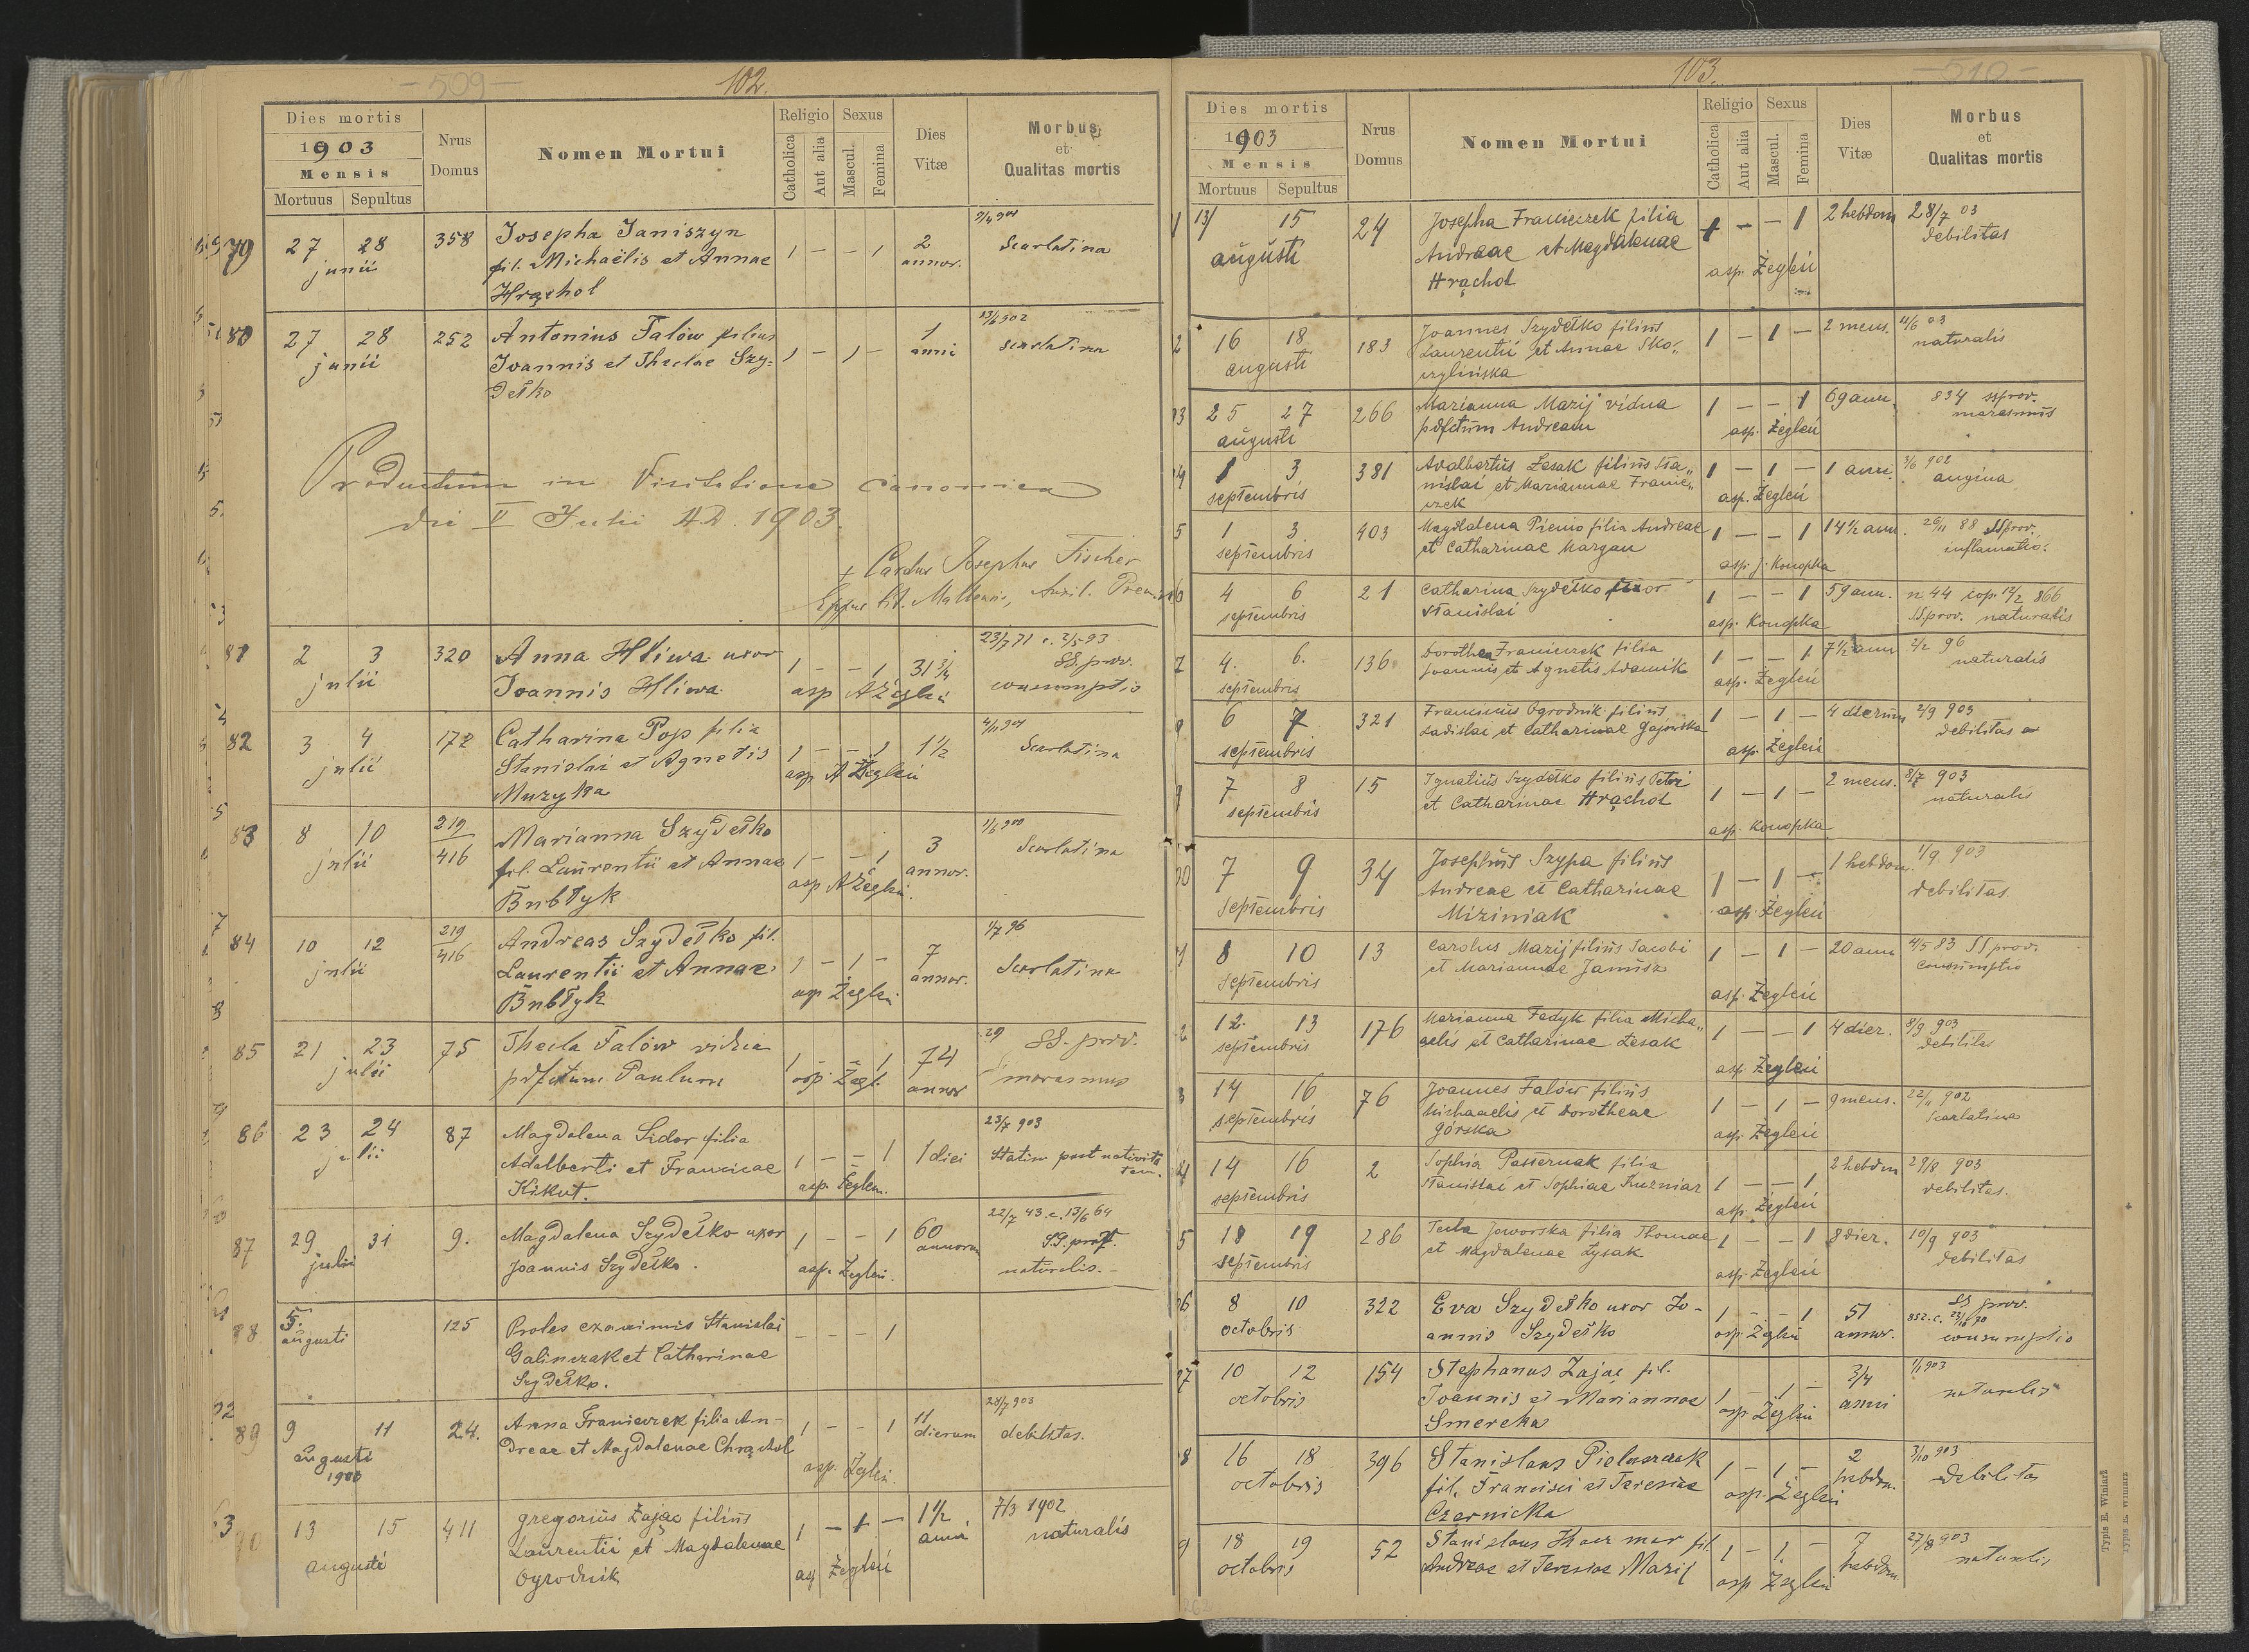 - 509 -
102.
Dies mortis
1903
Mensis
Mortuus Sepultus
Nrus Domus
Nomen Mortui
Religio
Catholica
Aut alia
Sexus
Mascul.
Femina
Dies Vitæ
Morbus
et
Qualitas mortis
79 27 28 358 Josepha Janiszyn 1 - - 1 2 Scarlatina
junii fil. Michaëlis et Annae annor.
Hrąchol
80 27 28 252 Antonius Falów filius 1 - 1 - 1 13/6 902
junii Joannis et Theclae Szy= anni scarlatina
dełko
Productum in Visitatione canonica
die II Julii A.D. 1903.
+ Josephus Fischer
81 2 3 320 Anna Hliwa uxor 1 - - 1 31 3/4 23/7 71 c. 2/5 93
julii Joannis Hliwa asp A Żegleń SS. prov.
consumptio
82 3 4 172 Catharina Pop filia 1 - - 1 1 1/2 Scarlatina
julii Stanislai et Agnetis asp A Żegleń
Muzyka
83 8 10 219/416 Marianna Szydełko 1 - - 1 3 1/6 900
julii fil. Laurentii et Annae asp A Żegleń. annor. Scarlatina
Bubłyk
84 10 12 219/416 Andreas Szydełko fil. 1 - 1 - 7 1/7 96
julii Laurentii et Annae asp Żegleń annor. Scarlatina
Bubłyk
85 21 23 75 Thecla Falów vidua 1 - - 1 74 29 SS. prov.
julii pdfctum Paulum asp Żegl. annor marasmus
86 23 24 87 Magdalena Sidor filia 1 - - 1 1 diei 23/7 903
julii Adalberti et Franciscae asp. Żegleń. Statim post nativita
Kikut. tem.
87 29 31 9. Magdalena Szydełko uxor 1 - - 1 60 22/7 43. c. 13/6 64
julii Joannis Szydełko. asp. Żegleń. annorum S.S. prov.
naturalis.
88 5. 125 Proles exanimis Stanislai - - - 1
augusti Galinczak et Catharinae
Szydełko.
89 9 11 24. Anna Franiczek filia An- 1 - - 1 11 28/7 903
augusti dreae et Magdalenae Chrąchol asp. Żegleń. dierum debilitas.
1903
90 13 15 411 Gregorius Zając filius 1 - 1 - 1 1/2 7/3 1902
augusti Laurentii et Magdalenae asp Żegleń anni naturalis
Ogrodnik
103.
- 510 -
Dies mortis
1903
Mensis
Mortuus Sepultus
Nrus Domus
Nomen Mortui
Religio
Catholica
Aut alia
Sexus
Mascul.
Femina
Dies Vitæ
Morbus
et
Qualitas mortis
1 13/ 15 24 Josepha Franiczek filia 1 - - 1 2 hebdom 28/7 03
augusti Andreae et Magdalenae asp. Żegleń debilitas
Hrąchol
2 16 18 183 Joannes Szydełko filius 1 - 1 - 2 mens. 11/6 03
augusti Laurentii et Annae Sko„ naturalis
czylińska
3 25 27 266 Marianna Mazij vidua 1 - - 1 69 ann. 834 SSprov.
augusti pdfctum Andream asp. Żegleń marasmus
4 1 3 381 Adalbertus Lesak filius Sta„ 1 - 1 - 1 anni. 3/6 902
septembris nislai et Mariannae Franic„ asp. Żegleń angina
czek
5 1 3 403 Magdalena Pienio filia Andreae 1 - - 1 14 1/2 ann. 26/11 88 SSprov.
septembris et Catharinae Margan asp. J. Konopka inflamatio.
6 4 6 21 Catharina Szydełko uxor 1 - - 1 59 ann. n. 44 cop. 12/2 866
septembris Stanislai asp. Konopka SSprov. naturalis
7 4. 6. 136 Dorothea Franiczek filia 1 - - 1 7 1/2 ann 2/2 96
septembris Joannis et Agnetis Adamik asp. Żegleń naturalis
8 6 7 321 Franciscus Ogrodnik filius 1 - 1 - 4 dierum 2/9 903
septembris Ladislai et Catharinae Gajowska asp. Żegleń debilitas
9 7 8 15 Ignatius Szydełko filius Petri 1 - 1 - 2 mens. 8/7 903
septembris et Catharinae Hrąchol naturalis
asp. Konopka
10 7 9 34 Josephus Szypa filius 1 - 1 - 1 hebdom. 1/9 903
Septembris Andreae et Catharinae asp. Żegleń debilitas.
Miziniak
1 8 10 13 Carolus Mazij filius Jacobi 1 - 1 - 20 ann 4/5 83 SSprov.
Septembris et Mariannae Janusz consumptio
asp. Żegleń
2 12. 13 176 Marianna Fedyk filia Micha„ 1 - - 1 4 dier. 8/9 903
septembris aelis et Catharinae Lesak asp Żegleń debilitas
3 14 16 76 Joannes Falów filius 1 - 1 - 9 mens. 22/11 902
septembris Michaaelis et Dorotheae asp. Żegleń Scarlatina
Górska
4 14 16 2 Sophia Pasternak filia 1 - - 1 2 hebdom 29/8 903
septembris Stanislai et Sophiae Kuzniar asp. Żegleń debilitas.
5 18 19 286 Tecla Jaworska filia Thomae 1 - - 1 8 dier. 10/9 903
septembris et Magdalenae Lysak debilitas
asp. Żegleń
6 8 10 322 Eva Szydełko uxor Jo- 1 - - 1 51 SS prov.
octobris annis Szydełko asp. Żegleń annor. 852. c. 23/10 70
consumptio
7 10 12 154 Stephanus Zając fil. 1 - 1 - 3/4 1/1 903
octobris Joannis et Mariannae asp Żegleń anni naturalis
Smereka
8 16 18 396 Stanislaus Pieluszczak 1 - 1 - 2 3/10 903
octobris fil. Francisci et Teresiae asp. Żegleń hebdm. debilitas
Czernicka
9 18 19 52 Stanislaus Kaczmar fil. 1 - 1 - 7 27/8 903
octobris Andreae et Teresiae Mazij asp Żegleń hebdom. naturalis
Typis E. Winiarz